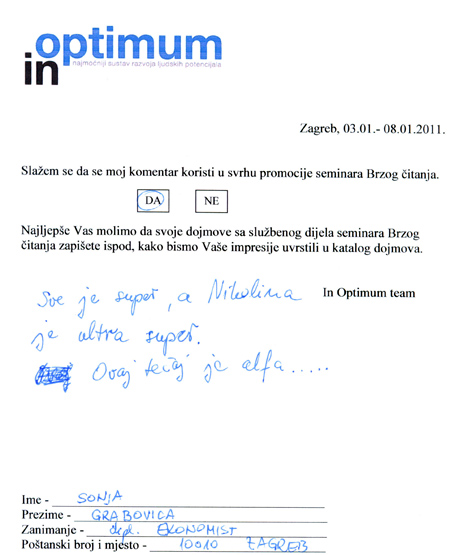 optimum
najmoćniji sustav razvoja ljudskih potencijala
in
Zagreb, 03.01.- 08.01.2011.
Slažem se da se moj komentar koristi u svrhu promocije seminara Brzog čitanja.
DA NE
Najljepše Vas molimo da svoje dojmove sa službenog dijela seminara Brzog
čitanja zapišete ispod, kako bismo Vaše impresije uvrstili u katalog dojmova.
Sve je super, a Nikolina
In Optimum team
je ultra super.
Ovaj tečaj je alfa.....
Ime - SONJA
Prezime - GRABOVICA
Zanimanje - dipl. EKONOMIST
Poštanski broj i mjesto - 10010 ZAGREB